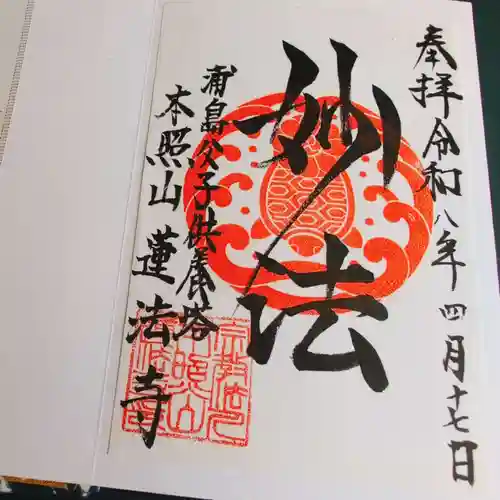 奉拝令和八年四月十七日
妙法
浦島父子供養塔
本照山蓮法寺